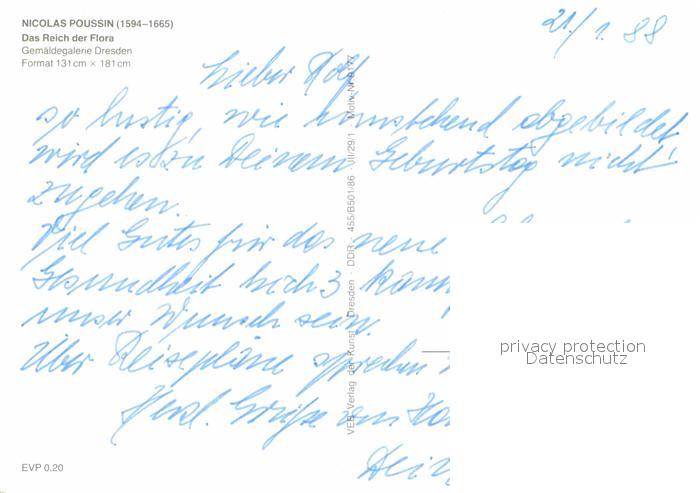 NICOLAS POUSSIN (1594–1665)
Das Reich der Flora
Gemäldegalerie Dresden
Format 131 cm × 181 cm
21/1.88
Lieber Rolf
so lustig, wie umstehend abgebildet
wird es zu Deinem Geburtstag nicht
zugehen.
Viel Gutes für das neue
Gesundheit hoch 3 kann
unser Wunsch sein.
Über Reisepläne sprechen
Herzl. Grüße von
EVP 0,20
VEB Verlag der Kunst · Dresden · DDR · 455/B501/86 · VII/29/1
privacy protection
Datenschutz